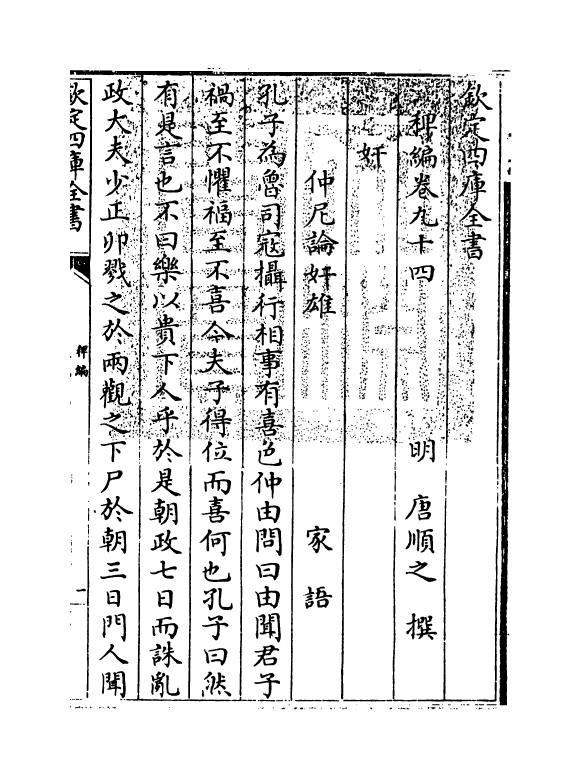 欽定四庫全書
稗編卷九十四 明 唐順之 撰
奸
仲尼論奸雄 家語
孔子為魯司寇攝行相事有喜色仲由問曰由聞君子
禍至不懼福至不喜今夫子得位而喜何也孔子曰然
有是言也不曰樂以貴下人乎於是朝政七日而誅亂
政大夫少正卯戮之於兩觀之下尸於朝三日門人聞
欽定四庫全書
稗編